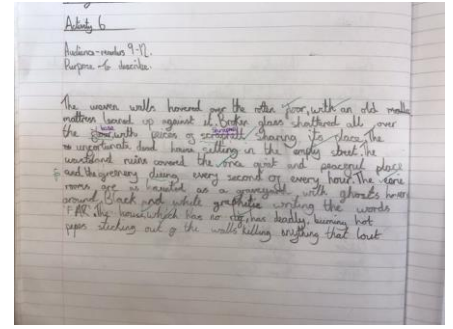 Activity 6
Audience - readers 9-12.
Purpose - to describe.
The woven walls hovered over the rotten floor, with an old
mattress leaned up against it. Broken glass shattered all over
the with pieces of sharing its place. The
unfortunate dead home sitting in the empty street. The
wasteland ruins covered the once quiet and peaceful place
and the greenery dieing every second of every hour. The
rooms are as haunted as a graveyard with ghosts
around. Black and white writing the words
FAR. The house, which has no has deadly, burning hot
pipes sticking out of the walls killing anything that